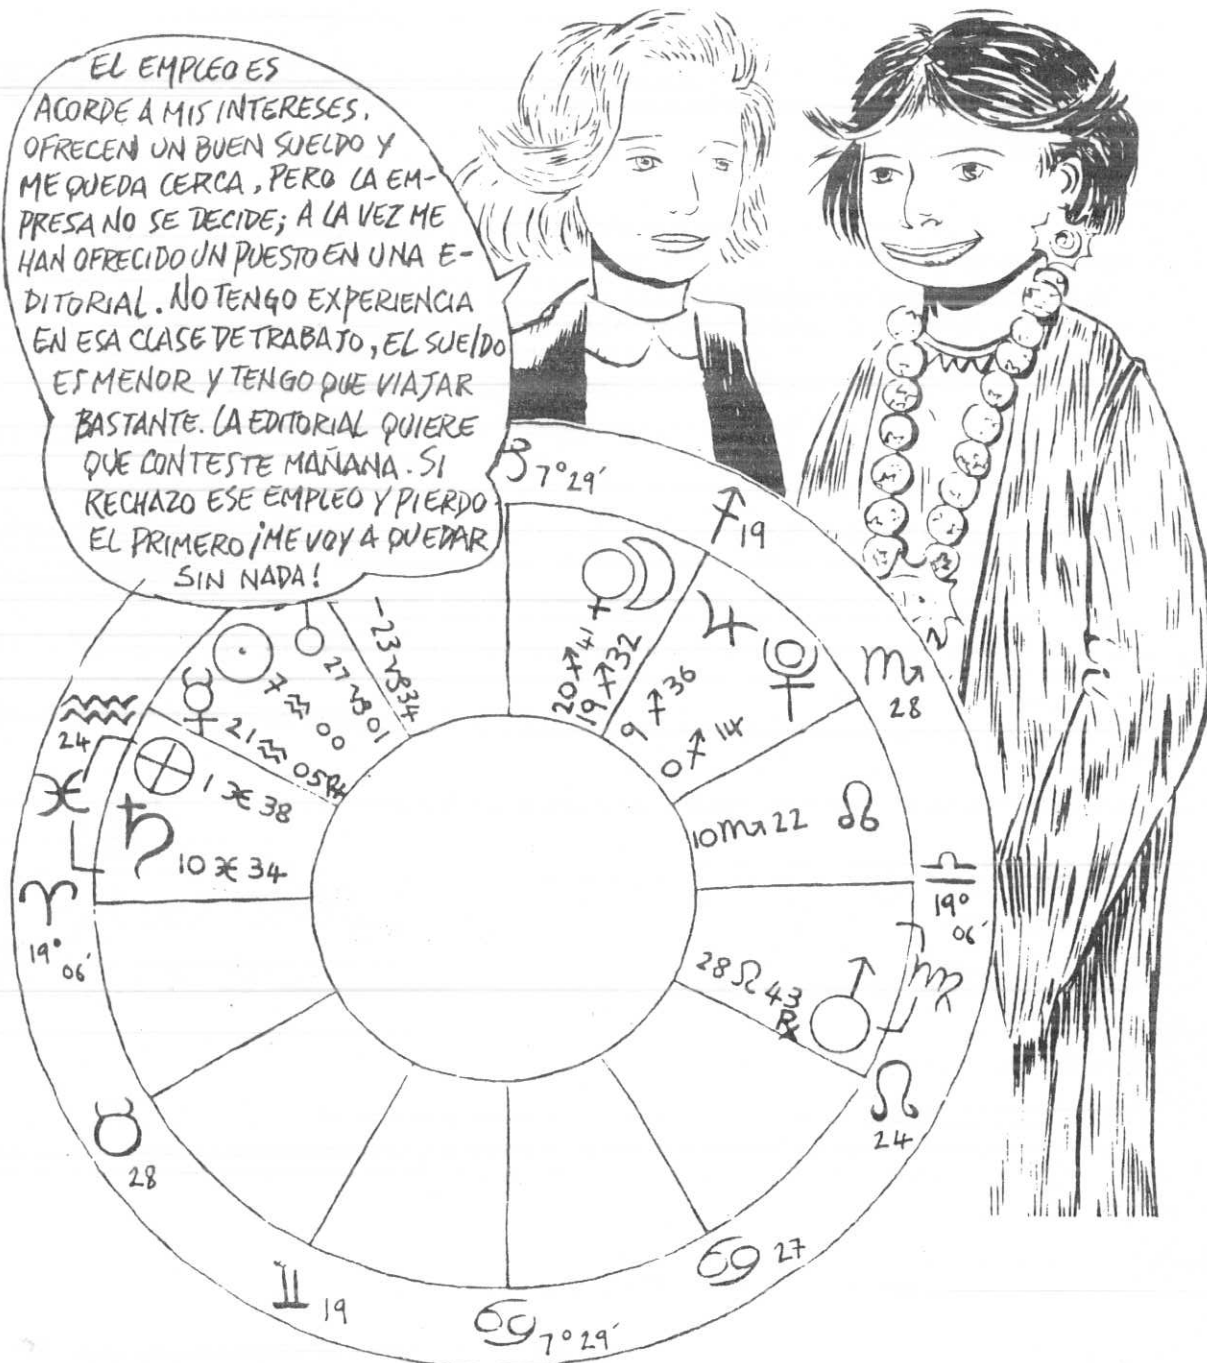 EL EMPLEO ES
ACORDE A MIS INTERESES.
OFRECEN UN BUEN SUELDO Y
ME QUEDA CERCA, PERO LA EM-
PRESA NO SE DECIDE; A LA VEZ ME
HAN OFRECIDO UN PUESTO EN UNA E-
DITORIAL. NO TENGO EXPERIENCIA
EN ESA CLASE DE TRABAJO, EL SUELDO
ES MENOR Y TENGO QUE VIAJAR
BASTANTE. LA EDITORIAL QUIERE
QUE CONTESTE MAÑANA. SI
RECHAZO ESE EMPLEO Y PIERDO
EL PRIMERO ¡ME VOY A QUEDAR
SIN NADA!
♑ 7° 29´
♐ 19
♀ ☽
20 ♐ 41
19 ♐ 32
♃
9 ♐ 36
0 ♐ 14
♏ 28
10 ♏ 22 ☊
♎ 19° 06´
28 ♌ 43 ℞ ♂
♍
♌ 24
♋ 27
♋ 7° 29´
♊ 19
♉ 28
♈ 19° 06´
♓
♄ 10 ♓ 34
⊗ 1 ♓ 38
♒ 24
☿ 21 ♒ 05 ℞
☉ 7 ♒ 00
27 ♑ 01
-23 ♑ 34